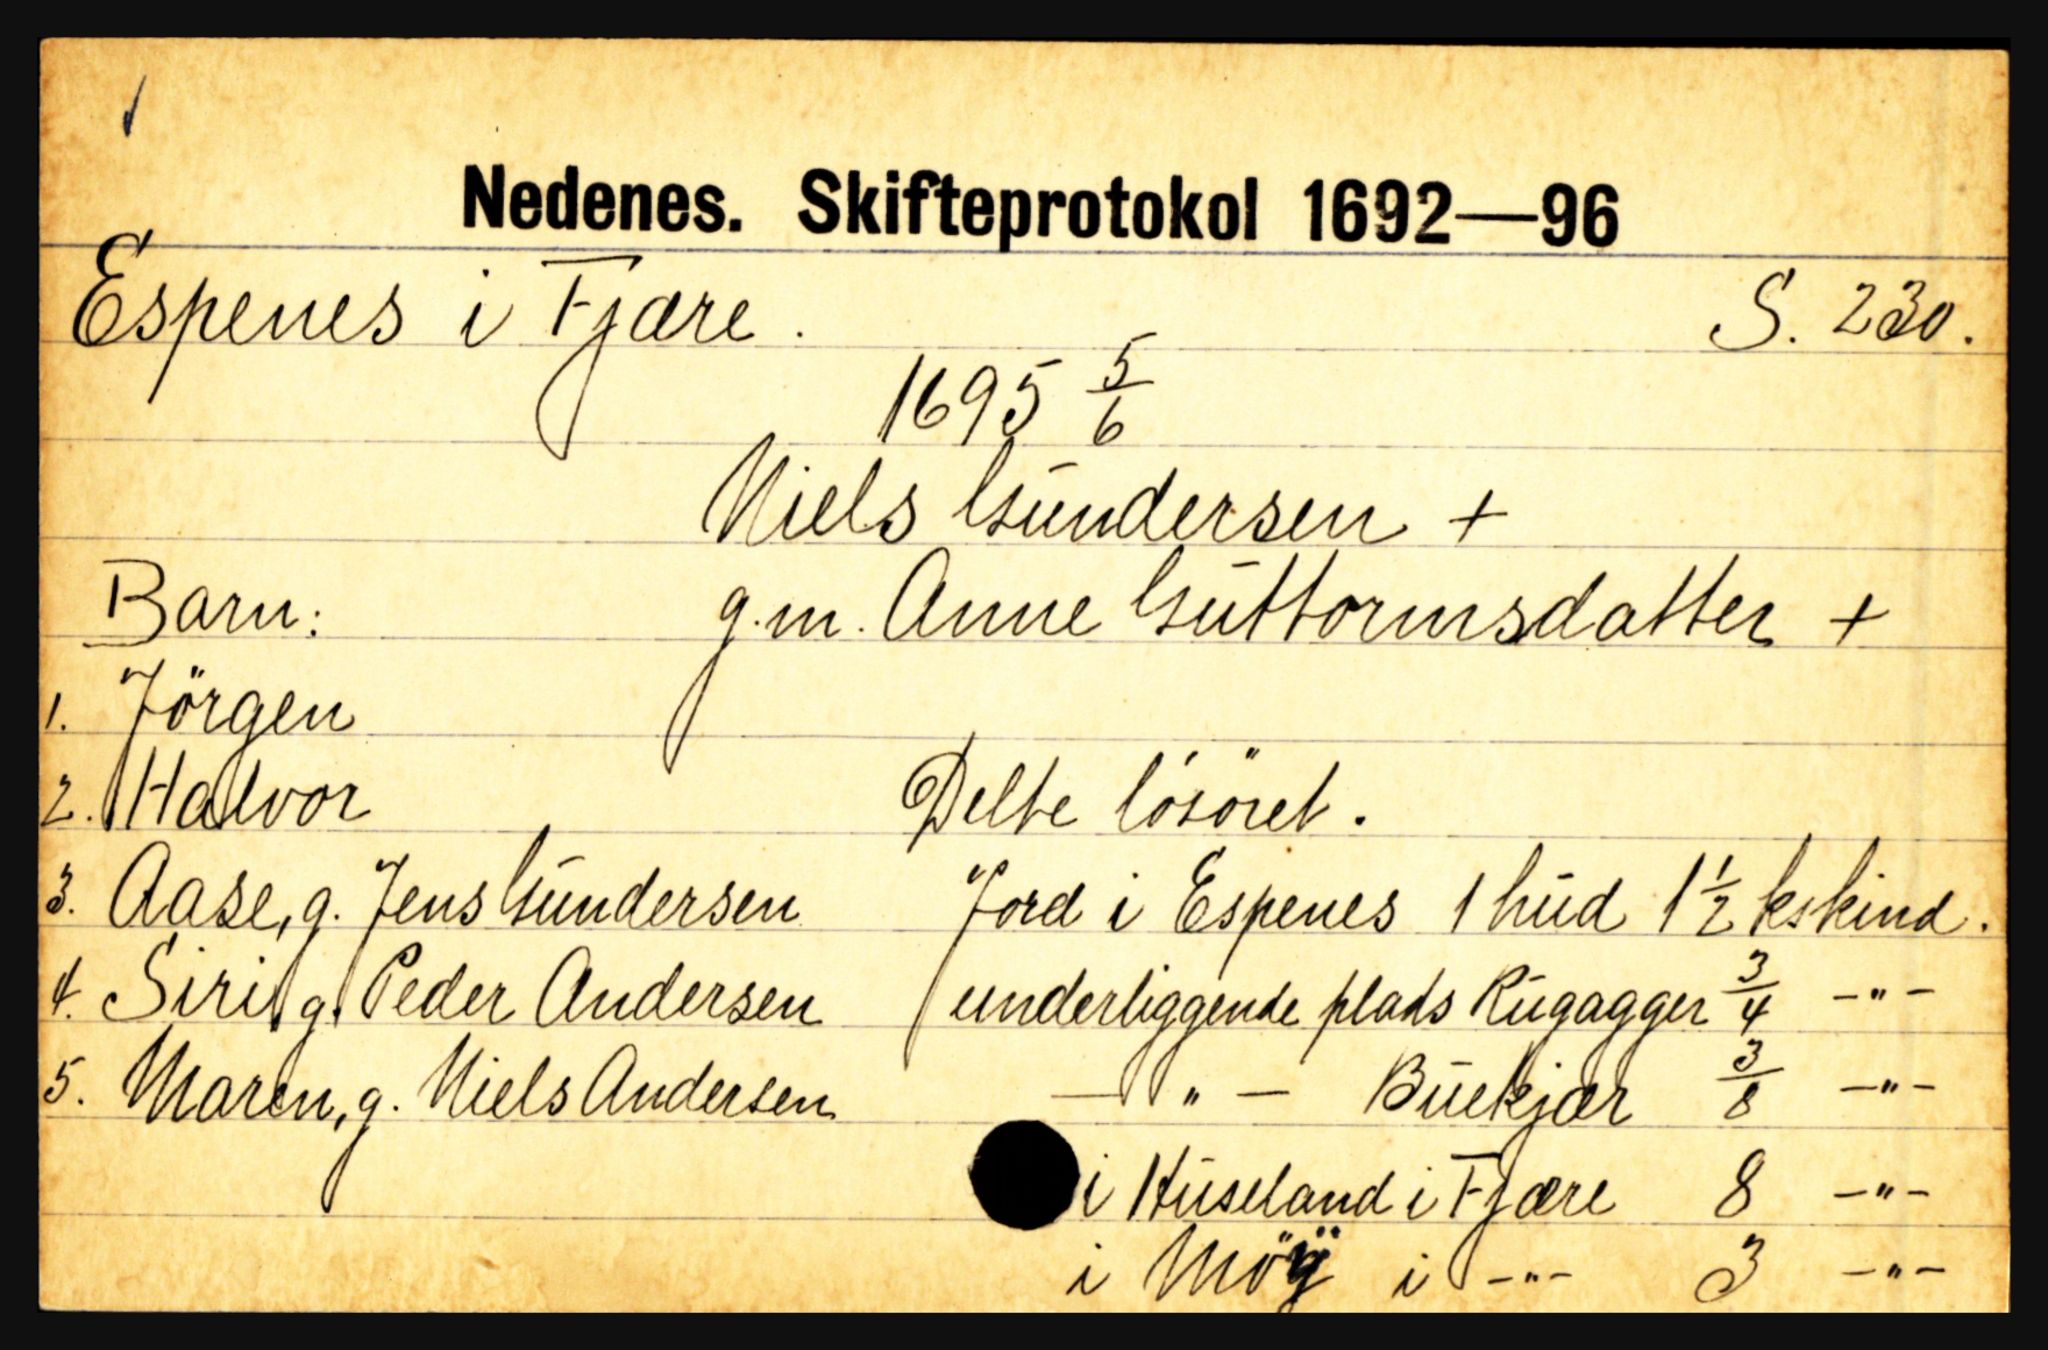 Nedenes. Skifteprotokol 1692—96
Espenes i Fjære. S. 230.
1695 5/6
Niels Gundersen +
Barn: g.m. Anne Guttormsdatter +
1. Jörgen
2. Halvor Delte lösöret.
3. Aase, g. Jens Gundersen Jord i Espenes 1 hud 1 1/2 kskind.
4. Siri g. Peder Andersen underliggende plads Rugagger 3/4 -"-
5. Maren, g. Niels Andersen - " - Buekjær 3/8 -"-
i Huseland i Fjære 8 -"-
i Möÿ i -"- 3 -"-